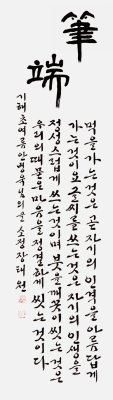 筆端
먹을 가는 것은 곧 자기의 인격을 아름답게
가는 것이요 글씨를 쓰는 것은 자기의 인생을
정성스럽게 쓰는 것이며 붓을 깨끗이 씻는 것은
우리의 때묻은 마음을 정결하게 씻는 것이다
기해 초여름 안병욱님의 글 소정 장태원